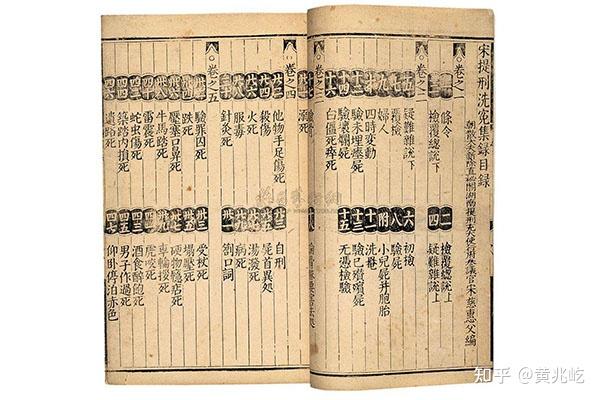 宋提刑洗冤集録目録
朝散大夫新除直秘閣湖南提刑充大使行府參議官宋慈惠父編
卷之一
條令 二 檢覆總說上
三 檢覆總說下 四 疑難雜說上
卷之二
五 疑難雜說下 六 初檢
七 覆檢 八 驗屍
九 婦人 附 小兒屍并胞胎
十 四時變動 十一 洗罨
十二 驗未埋瘞屍 十三 驗已殯殮屍
十四 驗壞爛屍 十五 无憑檢驗
十六 白僵死瘁死
溺死
卷之四
他物手足傷死 廿三 自刑
廿四 殺傷 廿五 屍首異處
廿六 火死 廿七 湯潑死
廿八 服毒 廿九 病死
三十 針灸死 卅一 劄口詞
卷之五
卅二 驗罪囚死 卅三 受杖死
卅四 跌死 卅五 塌壓死
卅六 壓塞口鼻死 卅七 硬物癮店死
卅八 牛馬踏死 卅九 車輪拶死
四十 雷震死 四一 虎咬死
四二 蛇虫傷死 四三 酒食醉飽死
四四 築踏內損死 四五 男子作過死
四六 遺路死 四七 仰卧停泊赤色
知乎 @黄兆屹